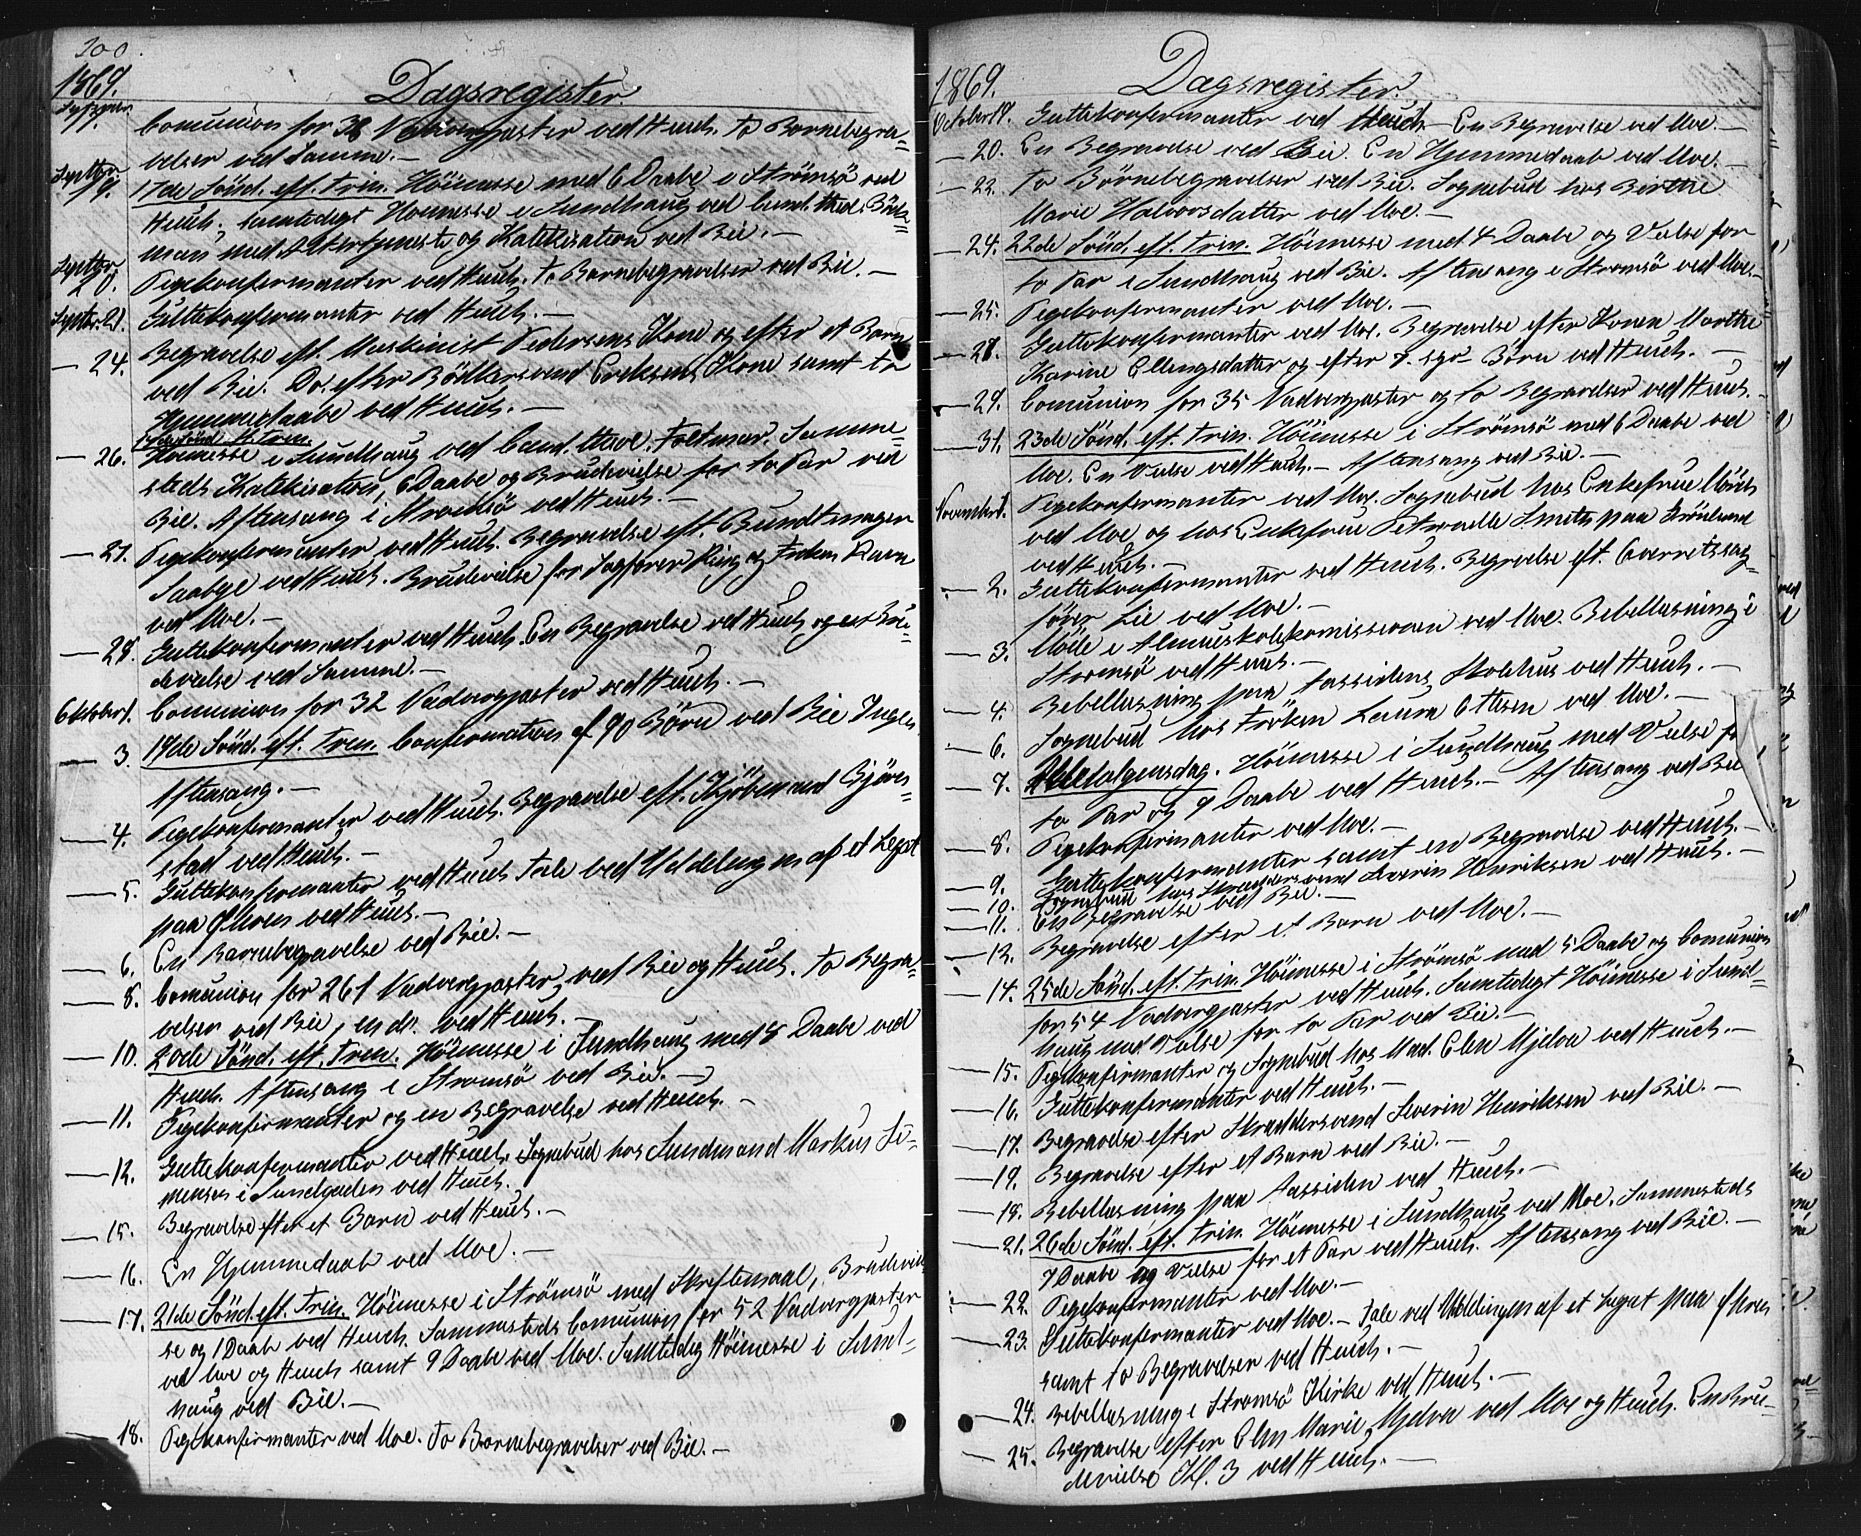 300.
1869.
Dagsregister.
Comunion for 38 Nadvergjæster ved Heuch. To Børnebegra=
velser ved Samme.—
Septbr. 19. 17de Sönd. eft. Trin. Höimesse med 6 Daabe i Strömsö ved
Heuch; samtidigt Höimesse i Sundhaug ved Cand. theol. Böck=
man med Altertjeneste og Katekisation ved Bie.—
Septbr. 20. Pigekonfirmanter ved Heuch. To Børnebegravelser ved Bie.—
Septbr. 21. Guttekonfirmanter ved Heuch.—
— 24. Begravelse eft. Maskinist Pedersens Kone og efter et Barn
ved Bie. Do. efter Bödkersvend Eriksens Kone samt to
Hjemmedaabe ved Heuch.—
18de Sönd. eft. Trin.
— 26. Höimesse i Sundhaug ved Cand. theol. Foltmar. Samme=
steds Katekisation, 6 Daabe og Brudevielse for to Par ved
Bie. Aftensang i Strömsö ved Heuch.—
— 27. Pigekonfirmanter ved Heuch. Begravelse eft. Bundtmager
Saabye ved Heuch. Brudevielse for Sagförer Ring og Fröken
ved Moe.—
— 28. Guttekonfirmanter ved Heuch. En Begravelse ved Heuch og en Bru=
devielse ved Samme.—
Oktober 1. Comunion for 32 Nadvergjæster ved Heuch.—
— 3. 19de Sönd. eft. Trin. Confirmation af 90 Börn ved Bie Ingen
Aftensang.—
— 4. Pigekonfirmanter ved Heuch. Begravelse eft. Kjöbmand Gjöres=
stad ved Heuch.—
— 5. Guttekonfirmanter ved Heuch Tale ved Uddelingen af et Legat
paa Øhren ved Heuch.—
— 6. En Barnebegravelse ved Bie.—
— 8. Comunion for 261 Nadvergjæster ved Bie og Heuch. To Begra=
velser ved Bie, en do. ved Heuch.—
— 10. 20de Sönd. eft. Trin. Höimesse i Sundhaug med 5 Daabe ved
Heuch. Aftensang i Strömsö ved Bie.—
— 11. Pigekonfirmanter og en Begravelse ved Heuch.—
— 12. Guttekonfirmanter ved Heuch. Sognebud hos Sundmand Markus Si=
mensen i Sundgaden ved Heuch.
— 15. Begravelse efter et Barn ved Heuch.—
— 16. En Hjemmedaab ved Moe.—
— 17. 21de Sönd. eft. Trin. Höimesse i Strömsö med Skriftemaal, Brudeviel
se og 1 Daab ved Heuch. Sammesteds Comunion for 52 Nadvergjæster
ved Moe og Heuch samt 9 Daabe ved Moe. Samtidig Höimesse i Sund=
haug ved Bie.—
— 18. Pigekonfirmanter ved Moe. To Børnebegravelser ved Bie.—
1869.
Dagsregister.
October 19. Guttekonfirmanter ved Heuch— En Begravelse ved Moe.—
— 20. En Begravelse ved Bie. En Hjemmedaab ved Moe.—
— 22. To Börnebegravelser ved Bie. Sognebud hos Birthe
Marie Halvorsdatter ved Moe.—
— 24. 22de Sönd. eft. Trin. Höimesse med 4 Daabe og Vielse for
to Par i Sundhaug ved Bie. Aftensang i Strömsö ved Moe.—
— 25. Pigekonfirmanter ved Moe.—
— 28. Guttekonfirmanter ved Moe. Begravelse efter Konen Marthe
Karine Ellingsdatter og efter Börn ved Heuch.—
— 29. Comunion for 35 Nadvergjæster og to Begravelser ved Heuch.
— 31. 23de Sönd. eft. Trin. Höimesse i Strömsö med 6 Daabe ved
Moe. En Vielse ved Heuch.— Aftensang ved Bie.—
November 1. Pigekonfirmanter ved Moe. Sognebud hos Enkefrue Mörch
ved Moe og hos Enkefrue Petronelle Smith paa Grönland
ved Heuch.—
— 2. Guttekonfirmanter ved Heuch. Begravelse eft. Overretssag=
förer Lie ved Moe.—
— 3. Möde i Almueskolekomissionen ved Moe. Bibellæsning i
Strömsö ved Heuch.—
— 4. Bibellæsning paa Tassidens Skolehus ved Heuch.—
— 6. Sognebud hos Fröken Laura Ottesen ved Moe.—
— 7. Allehelgensdag. Höimesse i Sundhaug med Vielse for
to Par og 9 Daabe ved Heuch.— Aftensang ved Bie
— 8. Pigekonfirmanter ved Moe.—
— 9. Guttekonfirmanter samt en Begravelse ved Heuch.—
— 10. Sognebud hos Skræddersvend Severin Henriksen ved Heuch.—
— 11. En Begravelse ved Bie.—
— 12. Begravelse efter et Barn ved Moe.—
— 14. 25de Sönd. eft. Trin. Höimesse i Strömsö med 5 Daabe og Comunion
for 54 Nadvergjæster ved Heuch. Samtidigt Höimesse i Sund=
haug med Vielse for to Par ved Bie.—
— 15. Pigekonfirmanter og Sognebud hos Mad. Elen Mjelva ved Heuch.—
— 16. Guttekonfirmanter ved Heuch.—
— 17. Begravelse efter Skræddersvend Severin Henriksen ved Bie.—
— 19. Begravelse efter et Barn ved Bie.—
— 18. Bibellæsning paa Tassiden ved Heuch.—
— 21. 26de Sönd. eft. Trin. Höimesse i Sundhaug ved Moe. Sammesteds
7 Daabe og Vielse for et Par ved Heuch. Aftensang ved Bie.—
— 22. Pigekonfirmanter ved Moe.—
— 23. Guttekonfirmanter ved Moe.— Tale ved Uddelingen af et Legat paa Øhren
samt to Begravelser ved Heuch.—
— 24. Bibellæsning i Strömsö Kirke ved Heuch.—
— 25. Begravelse efter Elen Marie Mjelva ved Moe og Heuch. En Bru=
devielse Kl. 3 ved Heuch.—